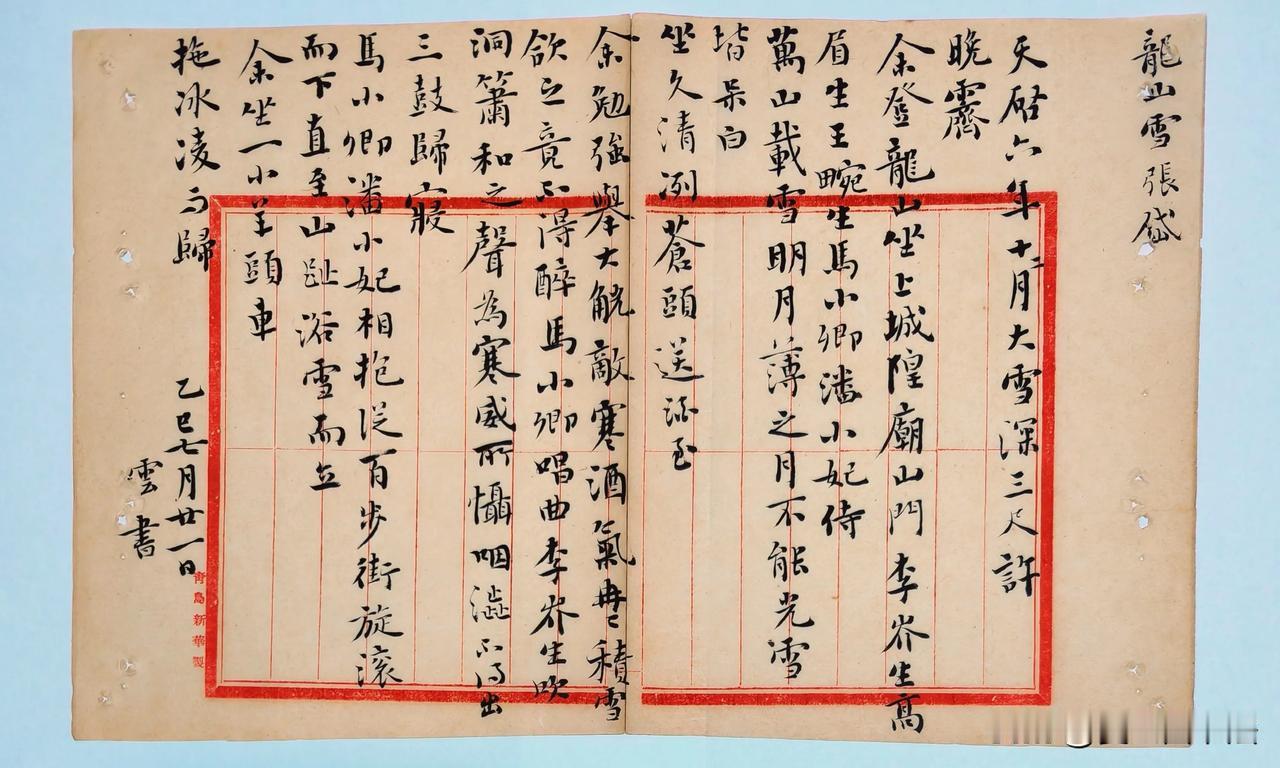 龍山雪張岱
天啟六年十二月大雪深三尺許
晚霽
余登龍山坐上城隍廟山門李岕生高
眉生王畹生馬小卿潘小妃侍
萬山載雪明月薄之月不能光雪
皆呆白
坐久清冽蒼頭送酒至
余勉強舉大觥敵寒酒氣冉冉積雪
欱之竟不得醉馬小卿唱曲李岕生吹
洞簫和之聲為寒威所懾咽澀不得出
三鼓歸寢
馬小卿潘小妃相抱從百步街旋滾
而下直至山趾浴雪而立
余坐一小羊頭車
拖冰凌而歸
乙巳七月廿一日
雲書
青島新華製